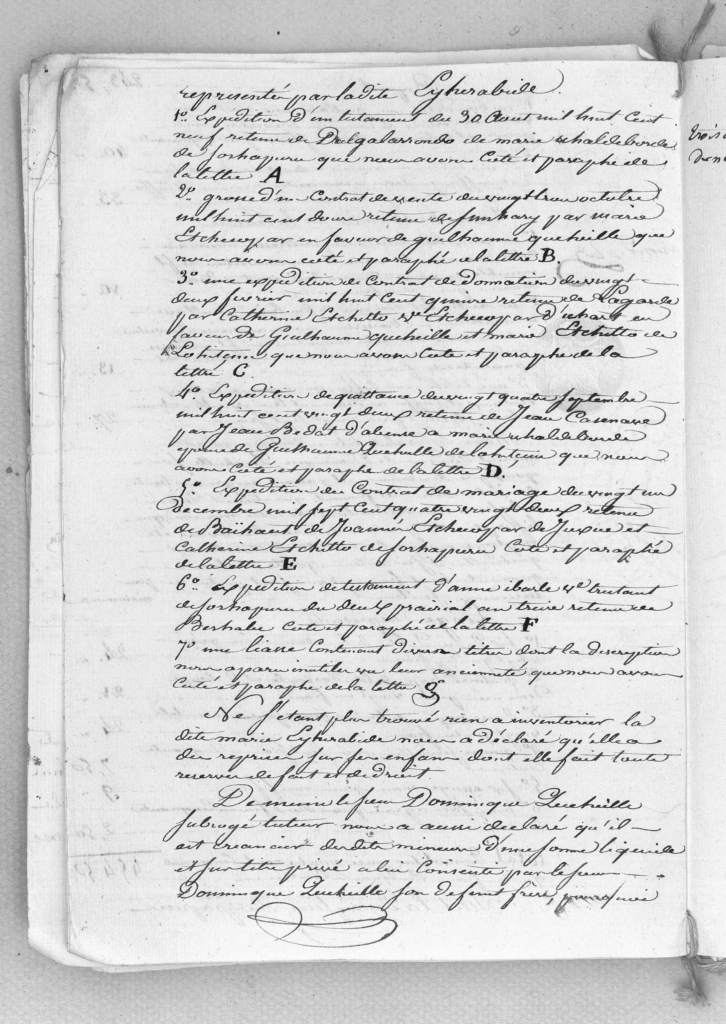 représentés par ladite Eyherabide.
1º Expédition d'un testament du 30 Aout mil huit Cent
neuf retenu de Dalgalarrondo de marie uhaldeborde
de Sorhapuru que nous avons Coté et paraphé de
la lettre A
2º grosse d'un Contrat de vente du vingt trois octobre
mil huit cent douze retenu de par marie
Etchecopar en faveur de guilhaume queheille que
nous avons coté et paraphé de la lettre B.
3º une expédition de Contrat de Donnation du vingt
deux fevrier mil huit Cent quinze retenu de Lagarde
par Catherine Etchetto Ve Etchecopar d'uhart en
faveur de Guilhaume queheille et marie Etchetto de
Lohitçun que nous avons Coté et paraphé de la
lettre C.
4º Expédition de quittance du vingt quatre Septembre
mil huit cent vingt deux retenu de Jean Casenave
par Jean Bedat d'abense a marie uhaldeborde
epouse de Guilhaume Queheille de Lohitçun que nous
avons Coté et paraphé de la lettre D.
5º Expédition du Contrat de mariage du vingt un
Decembre mil sept Cent quatre vingt deux retenu
de de Joannis Etchecopar de Juxue et
Catherine Etchetto de Sorhapuru Coté et paraphé
de la lettre E
6º Expédition de testament d'anne ibarle Ve
de Sorhapuru du deux prairial an treize retenu de
Berhabe Coté et paraphé de la lettre F
7º une liasse Contenant divers titres dont la description
nous a paru inutile vu leur ancienneté que nous avons
Coté et paraphé de la lettre g
Ne S'étant plus trouvé rien a inventorier la
dite marie Eyherabide nous a déclaré qu'elle a
des reprises sur ses enfans dont elle fait toute
reserve de fait et de droit
De meme le sieur Dominique Queheille
subrogé tuteur nous a aussi declaré qu'il
est creancier desdits mineurs d'une somme liquide
et sur titre privé a lui Consenti par le sieur
Dominique Queheille son defunt frère, pourquoi